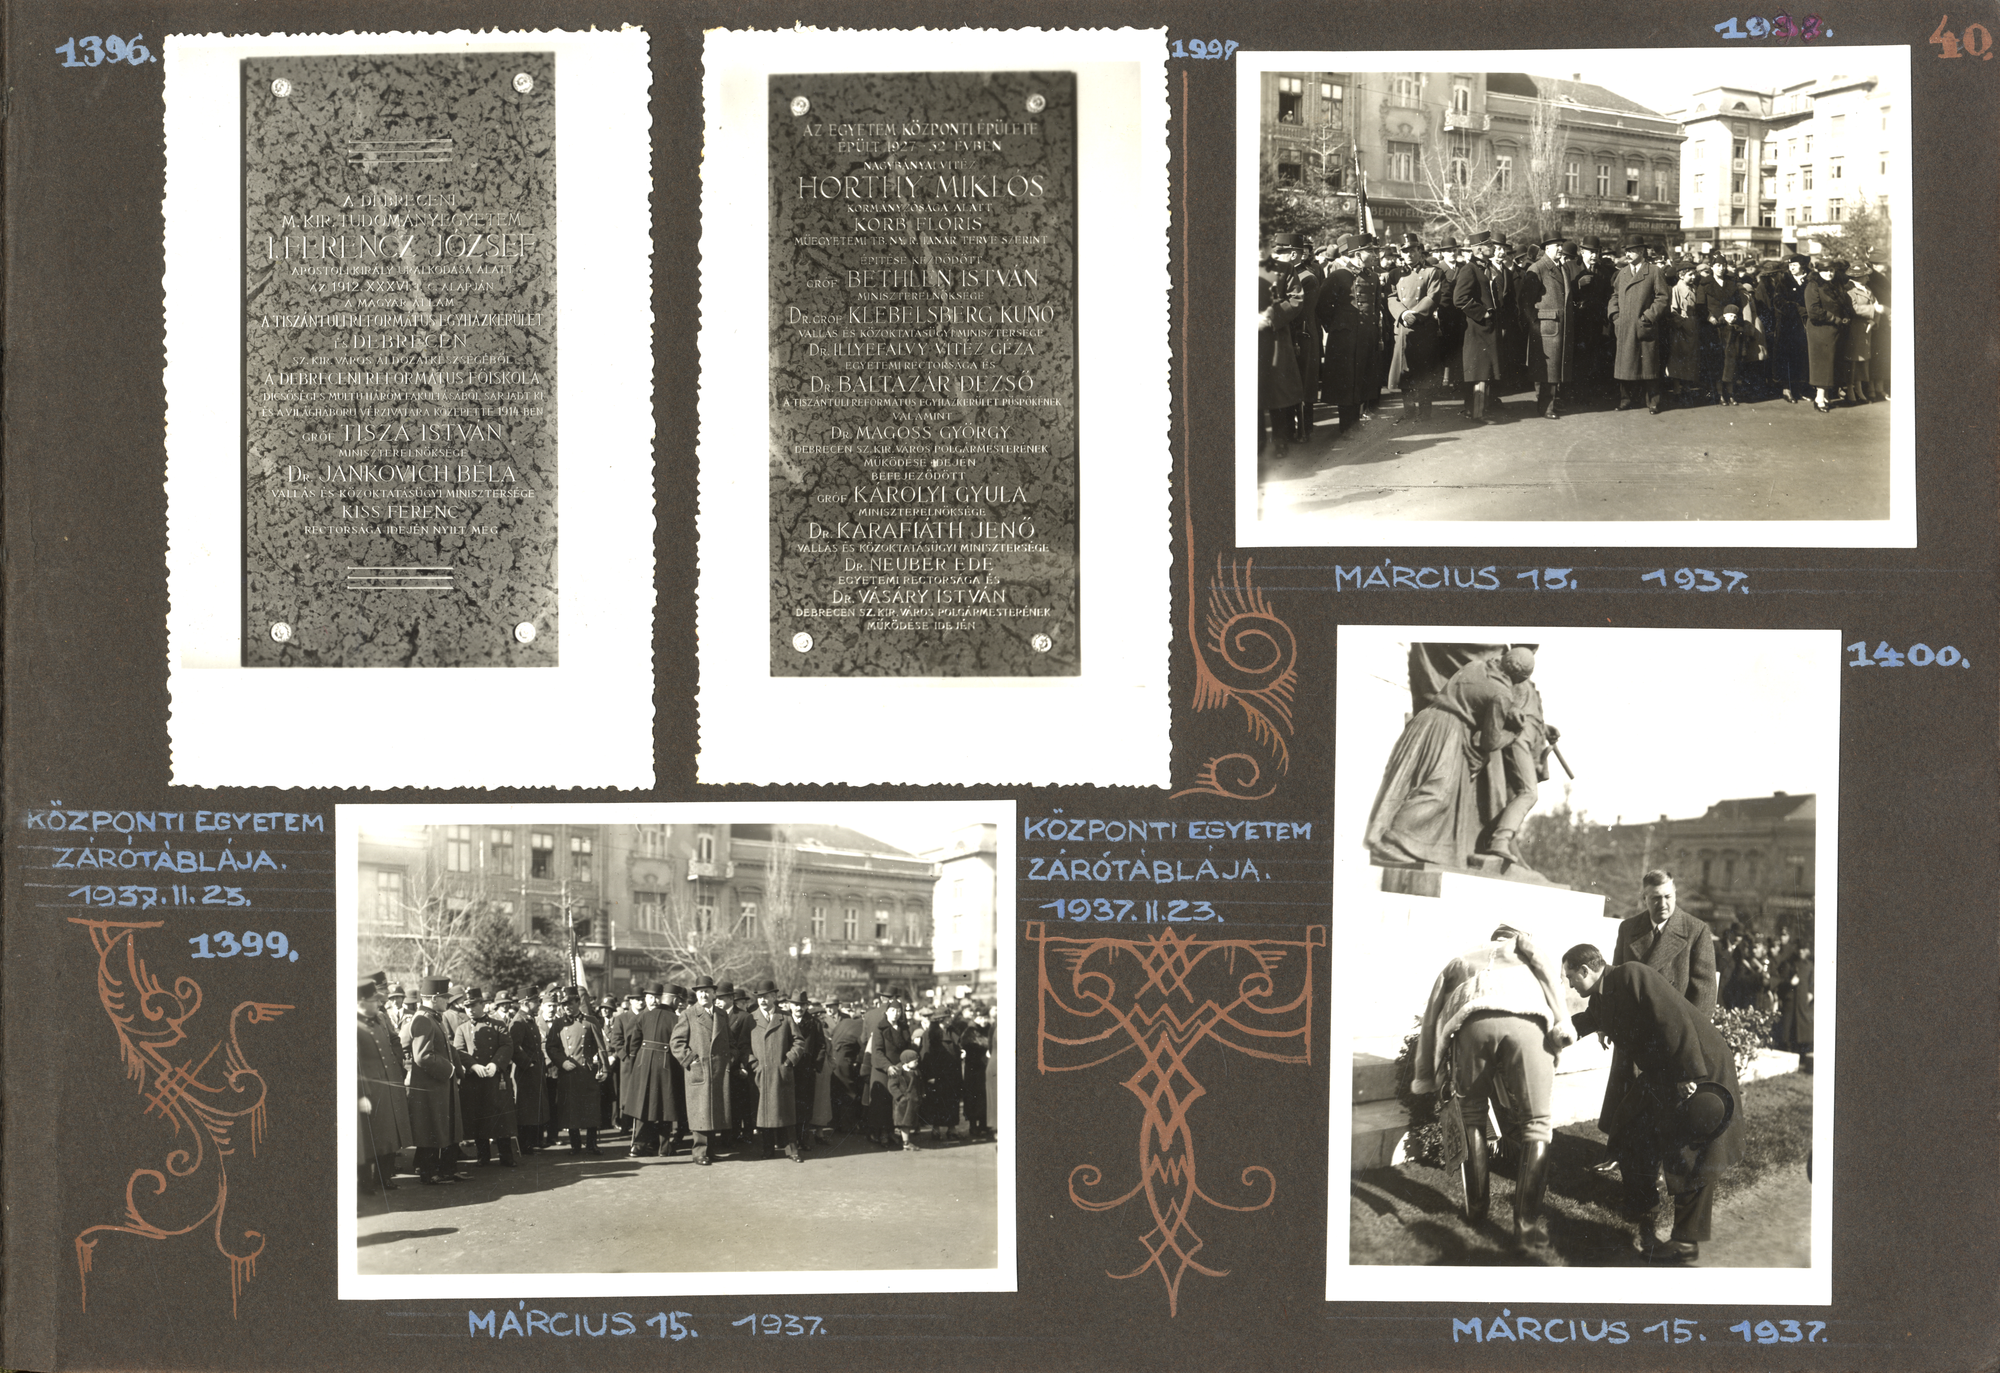 1396.
A DEBRECENI
M. KIR. TUDOMÁNYEGYETEM
I. FERENCZ JÓZSEF
APOSTOLI KIRÁLY URALKODÁSA ALATT
AZ 1912. XXXVI. T. C. ALAPJÁN
A MAGYAR ÁLLAM
A TISZÁNTÚLI REFORMÁTUS EGYHÁZKERÜLET
ÉS DEBRECEN
SZ. KIR. VÁROS ÁLDOZATKÉSZSÉGÉBŐL
A DEBRECENI REFORMÁTUS FŐISKOLA
DICSŐSÉGES MULTÚ HÁROM FAKULTÁSÁBÓL SARJADT KI
ÉS A VILÁGHÁBORÚ VÉRZIVATARA KÖZEPETTE 1914-BEN
GRÓF TISZA ISTVÁN
MINISZTERELNÖKSÉGE
DR. JANKOVICH BÉLA
VALLÁS ÉS KÖZOKTATÁSÜGYI MINISZTERSÉGE
KISS FERENC
RECTORSÁGA IDEJÉN NYÍLT MEG
KÖZPONTI EGYETEM
ZÁRÓTÁBLÁJA.
1937. II. 23.
1997
AZ EGYETEM KÖZPONTI ÉPÜLETE
ÉPÜLT 1927-32 ÉVBEN
NAGYBÁNYAI VITÉZ
HORTHY MIKLÓS
KORMÁNYZÓSÁGA ALATT
KORB FLÓRIS
MŰEGYETEMI TB. NY. R. TANÁR TERVE SZERINT
ÉPÍTÉSE KEZDŐDÖTT
GRÓF BETHLEN ISTVÁN
MINISZTERELNÖKSÉGE
DR. GRÓF KLEBELSBERG KUNÓ
VALLÁS ÉS KÖZOKTATÁSÜGYI MINISZTERSÉGE
DR. ILLYEFALVY VITÉZ GÉZA
EGYETEMI RECTORSÁGA ÉS
DR. BALTAZÁR DEZSŐ
A TISZÁNTÚLI REFORMÁTUS EGYHÁZKERÜLET PÜSPÖKÉNEK
VALAMINT
DR. MAGOSS GYÖRGY
DEBRECEN SZ. KIR. VÁROS POLGÁRMESTERÉNEK
MŰKÖDÉSE IDEJÉN
BEFEJEZŐDÖTT
GRÓF KÁROLYI GYULA
MINISZTERELNÖKSÉGE
DR. KARAFIÁTH JENŐ
VALLÁS ÉS KÖZOKTATÁSÜGYI MINISZTERSÉGE
DR. NEUBER EDE
EGYETEMI RECTORSÁGA ÉS
DR. VÁSÁRY ISTVÁN
DEBRECEN SZ. KIR. VÁROS POLGÁRMESTERÉNEK
MŰKÖDÉSE IDEJÉN
KÖZPONTI EGYETEM
ZÁRÓTÁBLÁJA.
1937. II. 23.
40.
MÁRCIUS 15. 1937.
1399.
MÁRCIUS 15. 1937.
1400.
MÁRCIUS 15. 1937.